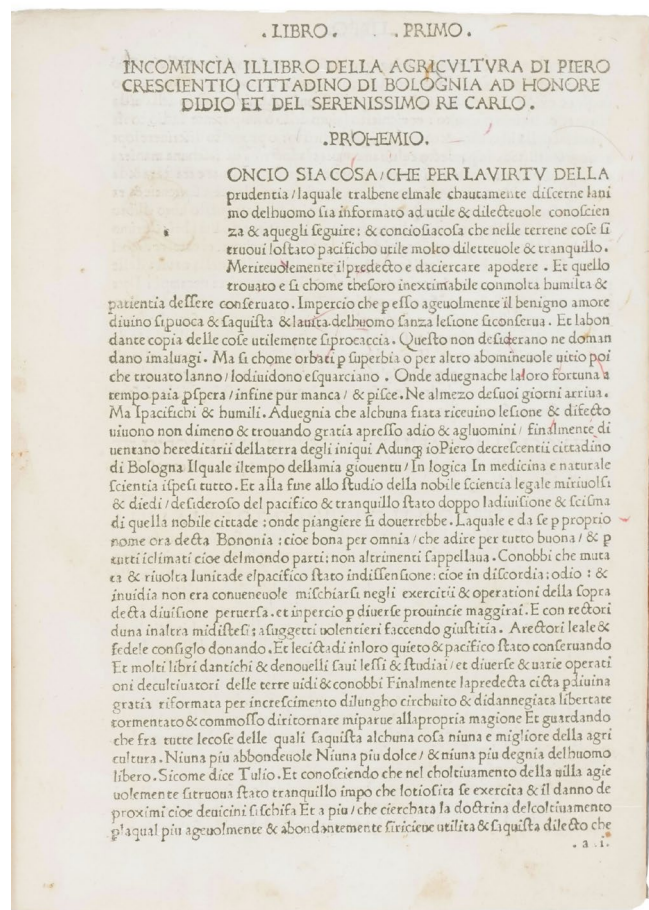 . LIBRO . . PRIMO .
INCOMINCIA ILLIBRO DELLA AGRICVLTVRA DI PIERO
CRESCIENTIO CITTADINO DI BOLOGNIA AD HONORE
DIDIO ET DEL SERENISSIMO RE CARLO .
. PROHEMIO .
ONCIO SIA COSA / CHE PER LAVIRTV DELLA
prudentia / laquale tralbene elmale chautamente discerne lani
mo delhuomo sia informato ad utile & dilecteuole conoscien
za & aquegli seguire : & conciosiacosa che nelle terrene cose si
truoui lostato pacificho utile molto diletteuole & tranquillo .
Meriteuolemente ilpredecto e daciercare apodere . Et quello
trouato e si chome thesoro inextimabile conmolta humilta &
patientia dessere conseruato . Impercio che ꝑ esso ageuolmente il benigno amore
diuino sipuoca & saquista & lauita delhuomo sanza lesione siconserua . Et labon
dante copia delle cose utilemente siprocaccia . Questo non desiderano ne doman
dano imaluagi . Ma si chome orbati ꝑ superbia o per altro abomineuole uitio poi
che trouato lanno / lodiuidono esquarciano . Onde aduegnache laloro fortuna a
tempo paia ꝓspera / infine pur manca / & pisce . Ne almezo desuoi giorni arriua .
Ma Ipacifichi & humili . Aduegnia che alchuna fiata riceuino lesione & difecto
uiuono non dimeno & trouando gratia apresso adio & agluomini / finalmente di
uentano hereditarii dellaterra degli iniqui Adunqꝫ ioPiero decrescentii cittadino
di Bologna Ilquale iltempo dellamia giouentu / In logica In medicina e naturale
scientia ispesi tutto . Et alla fine allo studio della nobile scientia legale miriuolsi
& diedi / desideroso del pacifico & tranquillo stato doppo ladiuisione & scisma
di quella nobile cittade : onde piangiere si douerrebbe . Laquale e da se ꝑ proprio
nome ora decta Bononia : cioe bona per omnia / che adire per tutto buona / & ꝑ
tutti iclimati cioe del mondo parti : non altrimenti sappellaua . Conobbi che muta
ta & riuolta lunitade elpacifico stato indissensione : cioe in discordia : odio : &
inuidia non era conueneuole mischiarsi negli exercitii & operationi della sopra
decta diuisione peruersa . et inpercio ꝑ diuerse prouincie maggirai . E con rectori
duna inaltra midistesi ; asuggetti uolentieri faccendo giustitia . Arectori leale &
fedele consiglo donando . Et lecictadi inloro quieto & pacifico stato conseruando
Et molti libri dantichi & denouelli saui lessi & studiai / et diuerse & uarie operati
oni decultiuatori delle terre uidi & conobbi Finalmente lapredecta cicta ꝑdiuina
gratia riformata per increscimento dilungho circhuito & didannegiata libertate
tormentato & commosso diritornare miparue allapropria magione Et guardando
che fra tutte lecose delle quali saquista alchuna cosa niuna e migliore della agri
cultura . Niuna piu abbondeuole Niuna piu dolce / & niuna piu degnia delhuomo
libero . Sicome dice Tulio . Et conosciendo che nel choltiuamento della uilla agie
uolemente sitruoua stato tranquillo impo che lotiosita se exercita & il danno de
proximi cioe deuicini si schifa Et a piu / che cierchata la doctrina delcoltiuamento
ꝑlaqual piu ageuolmente & abondantemente siriciene utilita & saquista dilecto che
. a . i .